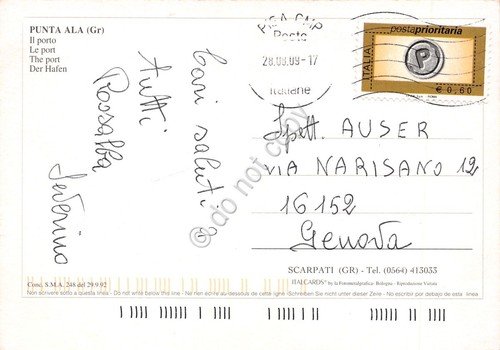 PUNTA ALA (Gr)
Il porto
Le port
The port
Der Hafen
Cari saluti a
tutti
Rosalba
Severino
PISA CMP
Poste
28.09.09-17
Italiane
postaprioritaria
ITALIA
P
€ 0,60
Spett. AUSER
VIA NARISANO 12
16152
Genova
do not copy
SCARPATI (GR) - Tel. (0564) 413033
Conc. S.M.A. 248 del 29.9.92
ITALCARDS by la Fotometalgrafica - Bologna - Riproduzione Vietata
Non scrivere sotto a questa linea - Do not write below this line - Ne rien écrire au-dessous de cette ligne - Schreiben Sie nicht unter dieser Zeile - No escribir por debajo de esta linea